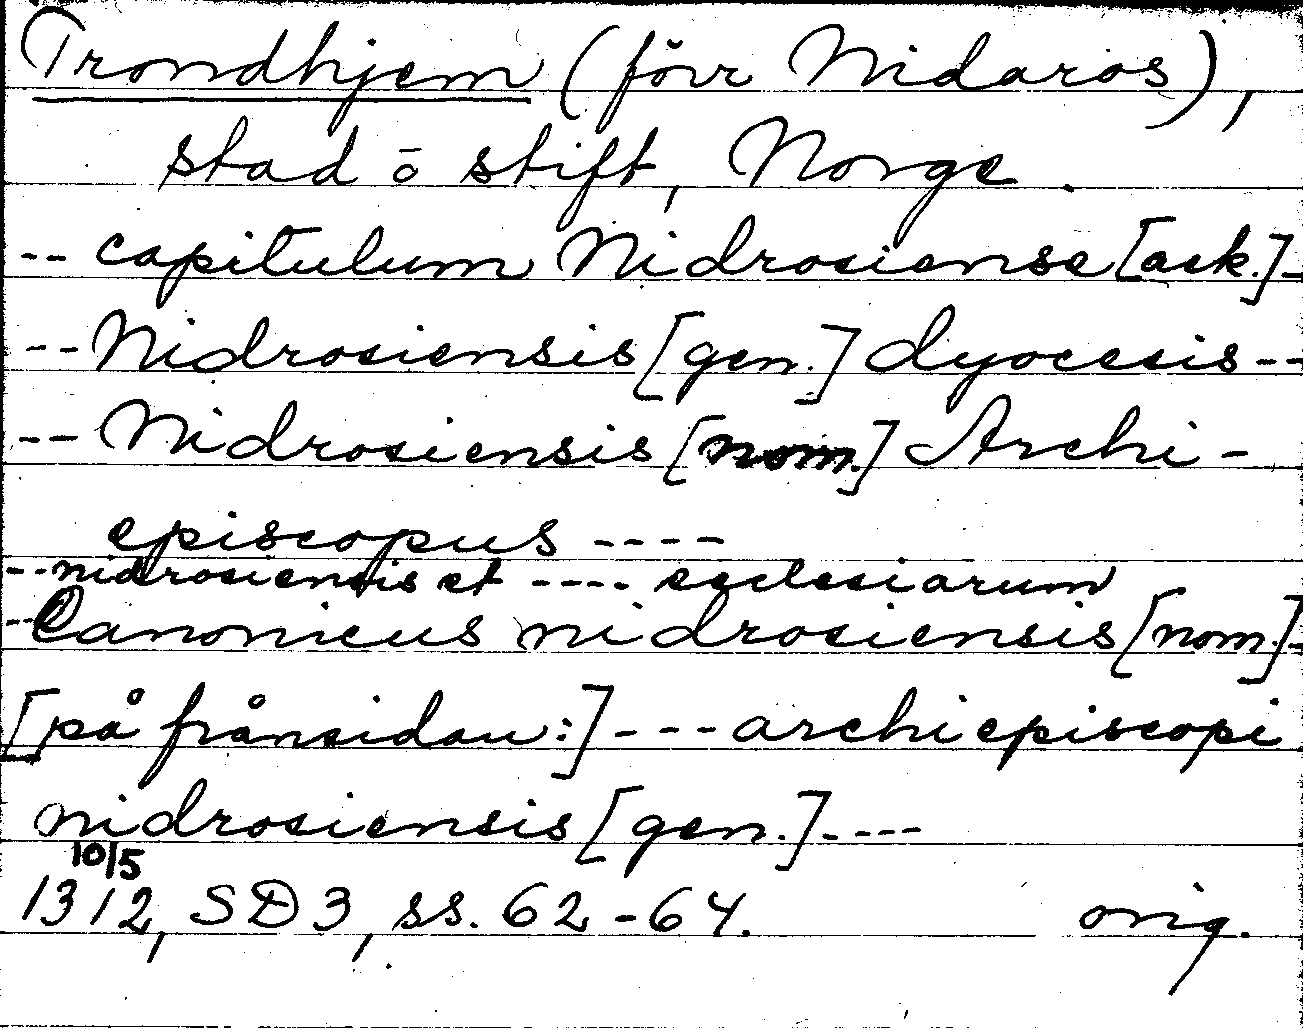 Trondhjem (förr Nidaros),
stad o stift, Norge.
-- capitulum Nidrosiense [ack.] -
-- Nidrosiensis [gen.] dyocesis --
-- Nidrosiensis [nom.] Archi-
episcopus ----
-- nidrosiensis et ---- ecclesiarum
-- Canonicus nidrosiensis [nom.] -
[på frånsidan:] --- archiepiscopi
nidrosiensis [gen.] ----
10/5
1312, SD 3, ss. 62-64. orig.